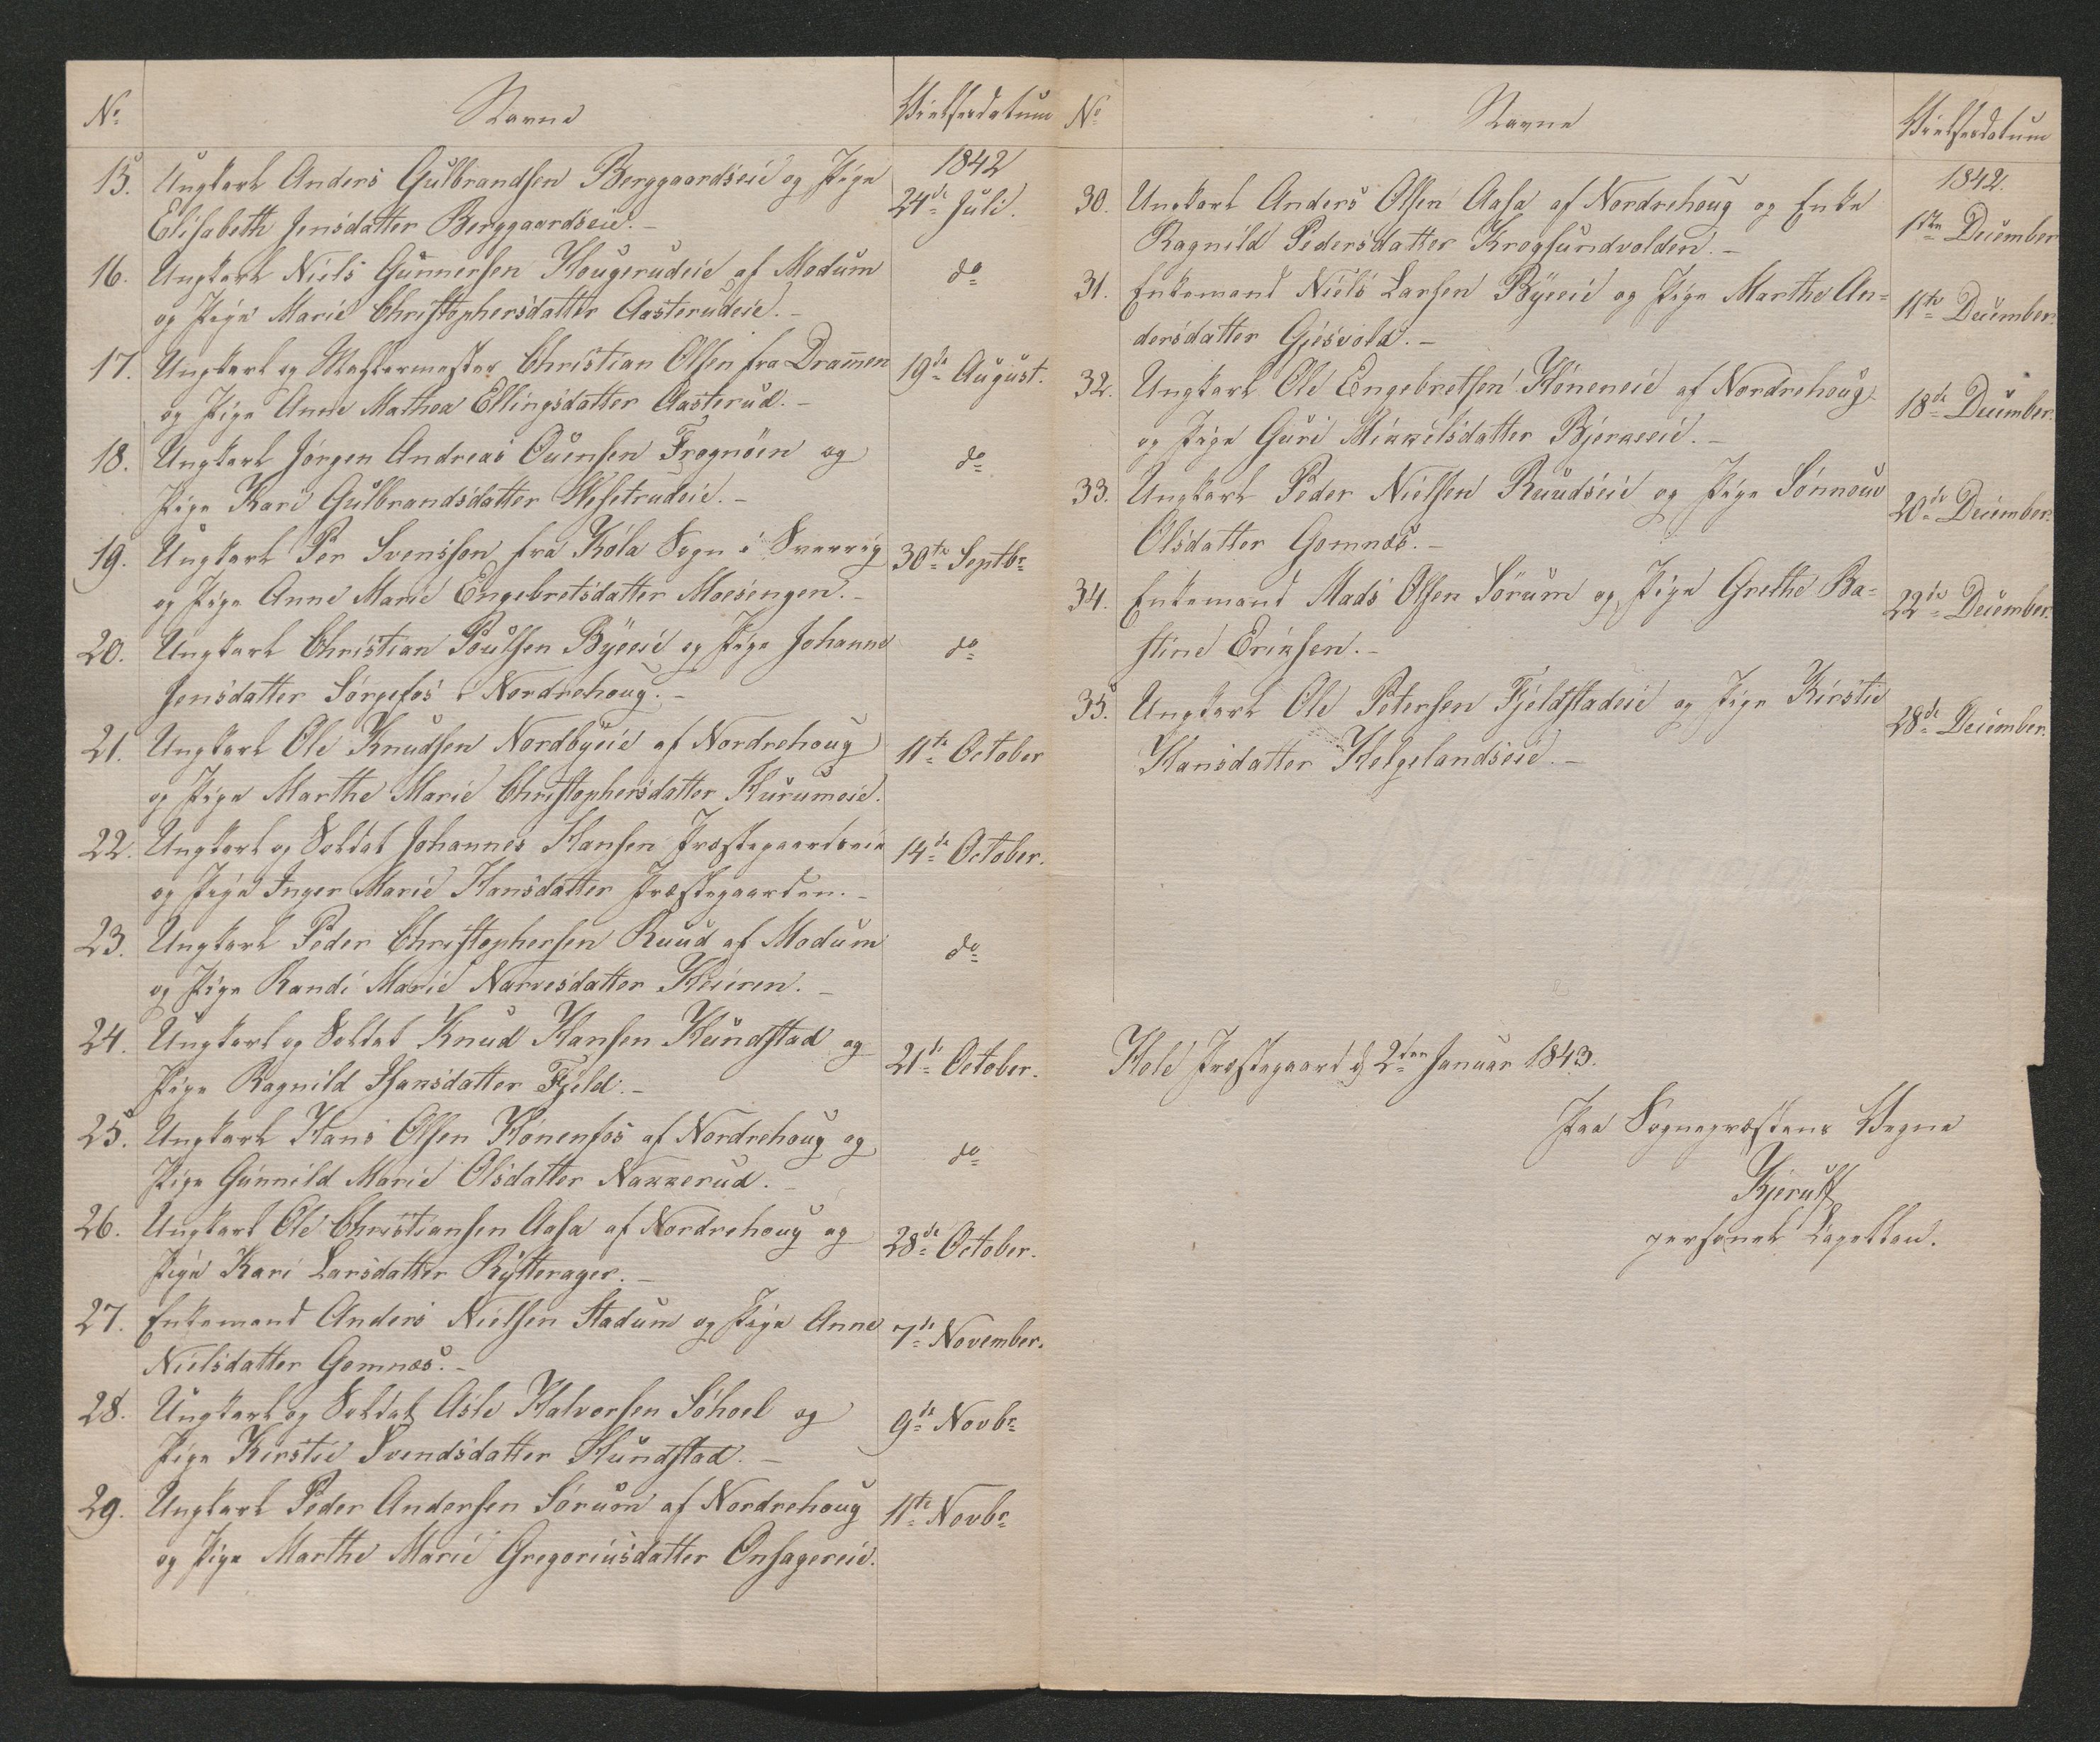 No. Navne Vielsesdatum
1842
15. Ungkarl Anders Gulbrandsen Berggaardseie og Pige 24de Juli.
Elisabeth Jensdatter Berggaardseie. –
16. Ungkarl Niels Gunnersen Hougerudeie af Modum do
og Pige Marie Christophersdatter Aasterudeie. –
17. Ungkarl og Christian Olsen fra Dram̅en 19de August.
og Pige Anne Mathea Ellingsdatter Aasterud. –
18. Ungkarl Jørgen Andreas Ouensen Frognøen og do
Pige Kari Gulbrandsdatter Vesetrudeie. –
19. Ungkarl Per Svensson fra Köla Sogn i Sverrig 30te Septbr
og Pige Anne Marie Engebretsdatter Moesengen. –
20. Ungkarl Christian Poulsen Byeeie og Pige Johanne do
Jensdatter Sørgefos i Nordrehoug. –
21. Ungkarl Ole Knudsen Nordbyeie af Nordrehoug 11te October
og Pige Marthe Marie Christophersdatter Hurumeie.
22. Ungkarl og Soldat Johannes Hansen Præstegaardseie 14de October.
og Pige Inger Marie Hansdatter Præstegaarden. –
23. Ungkarl Peder Christophersen Ruud af Modum do
og Pige Randi Marie Narvesdatter Heieren. –
24. Ungkarl og Soldat Knud Hansen Hundstad og 21de October.
Pige Ragnild Isaksdatter Fjeld. –
25. Ungkarl Hans Olsen Hønenfos af Nordrehoug og do
Pige Gunnild Marie Olsdatter Nakkerud. –
26. Ungkarl Ole Christiansen Aasa af Nordrehoug og 28de October.
Pige Kari Larsdatter Rytterager. –
27. Enkemand Anders Nielsen Stadum og Pige Anne 7de November.
Nielsdatter Gomnæs. –
28. Ungkarl og Soldat Asle Halvorsen Söhoel og 9de Novbr
Pige Kirstie Svendsdatter Hundstad. –
29. Ungkarl Peder Andersen Sørum af Nordrehoug 11te Novbr
og Pige Marthe Marie Gregoriusdatter Onsagereie.
No Navne Vielsesdatum
1842.
30. Ungkarl Anders Olsen Aasa af Nordrehoug og Enke 1ste December
Ragnild Pedersdatter Krogsundvolden. –
31. Enkemand Niels Larsen Byeeie og Pige Marthe An= 11te December.
dersdatter Gjesvold. –
32. Ungkarl Ole Engebretsen Høneneie af Nordrehoug 18de December.
og Pige Guri Mikkelsdatter Bjerkeeie. –
33. Ungkarl Peder Nielsen Ruudseie og Pige Sønnouv 20de December.
Olsdatter Gomnæs. –
34. Enkemand Mads Olsen Sörum og Pige Grethe Ba= 22de December.
stine Eriksen. –
35. Ungkarl Ole Petersen Fjeldstadeie og Pige Kirstie 28de December.
Hansdatter Helgelandseie. –
Hole Præstegaard d. 2den Januar 1843.
Paa Sognepræstens Vegne
Kjerulf
personel Capellan.